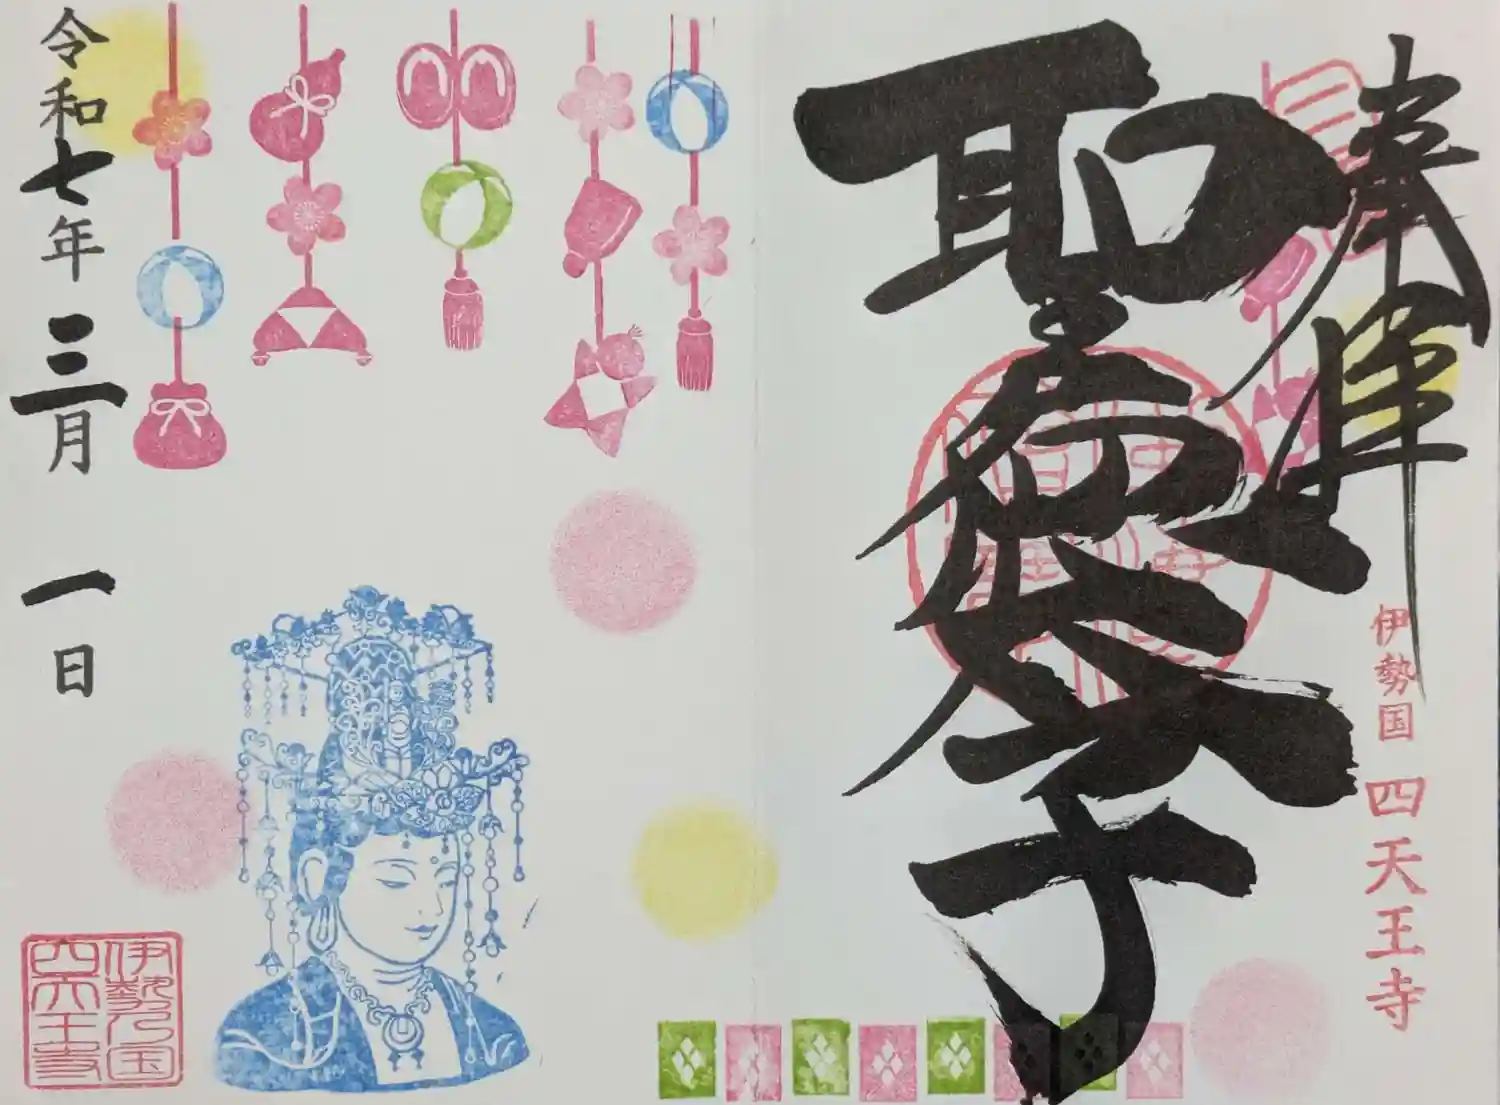 奉拝
聖徳太子
伊勢国 四天王寺
令和七年三月一日
伊勢乃国
四天王寺